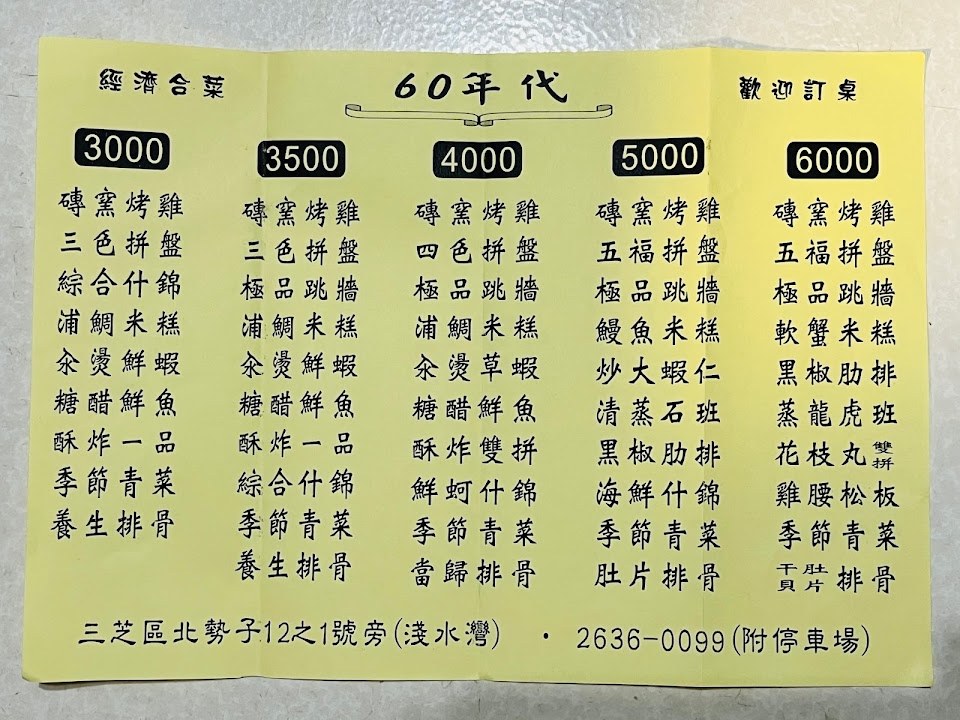 經濟合菜
60年代
歡迎訂桌
3000
磚窯烤雞
三色拼盤
綜合什錦
浦鯛米糕
汆燙鮮蝦
糖醋鮮魚
酥炸一品
季節青菜
養生排骨
3500
磚窯烤雞
三色拼盤
極品跳牆
浦鯛米糕
汆燙鮮蝦
糖醋鮮魚
酥炸一品
綜合什錦
季節青菜
養生排骨
4000
磚窯烤雞
四色拼盤
極品跳牆
浦鯛米糕
汆燙草蝦
糖醋鮮魚
酥炸雙拼
鮮蚵什錦
季節青菜
當歸排骨
5000
磚窯烤雞
五福拼盤
極品跳牆
鰻魚米糕
炒大蝦仁
清蒸石班
黑椒肋排
海鮮什錦
季節青菜
肚片排骨
6000
磚窯烤雞
五福拼盤
極品跳牆
軟蟹米糕
黑椒肋排
蒸龍虎班
花枝丸雙拼
雞腰松板
季節青菜
干貝肚片排骨
三芝區北勢子12之1號旁(淺水灣) · 2636-0099(附停車場)